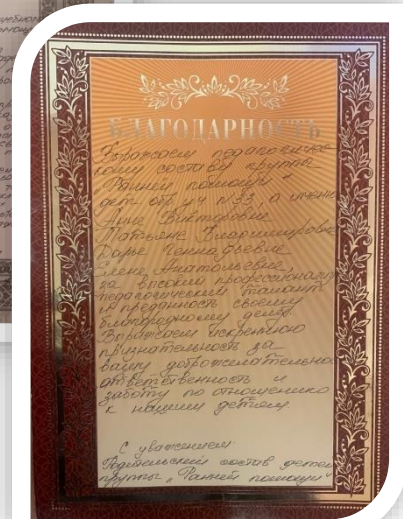 БЛАГОДАРНОСТЬ
Выражаем педагогичес-
кому составу группы
"Ранней помощи"
дет. обр. уч. №33, а именно
Анне Викторовне
Татьяне Владимировне
Дарье Геннадьевне
Елене Анатольевне,
за высокий профессионализм
педагогический талант
и преданность своему
благородному делу.
Выражаем искреннюю
признательность за
вашу доброжелательность
ответственность и
заботу по отношению
к нашим детям.
С уважением:
Родительский состав детей
группы "Ранней помощи"